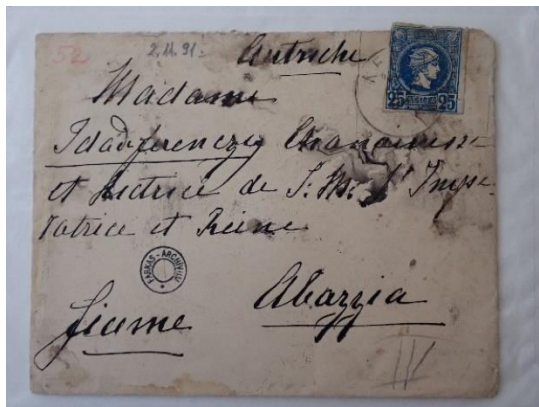 52
2.11.91.
Autriche
Madame
Ida de Ferenczy Chanoinesse
et Lectrice de S. M. l'Impé-
ratrice et Reine
FARKAS-ARCHIVUM
Fiume
Abazzia
25 25